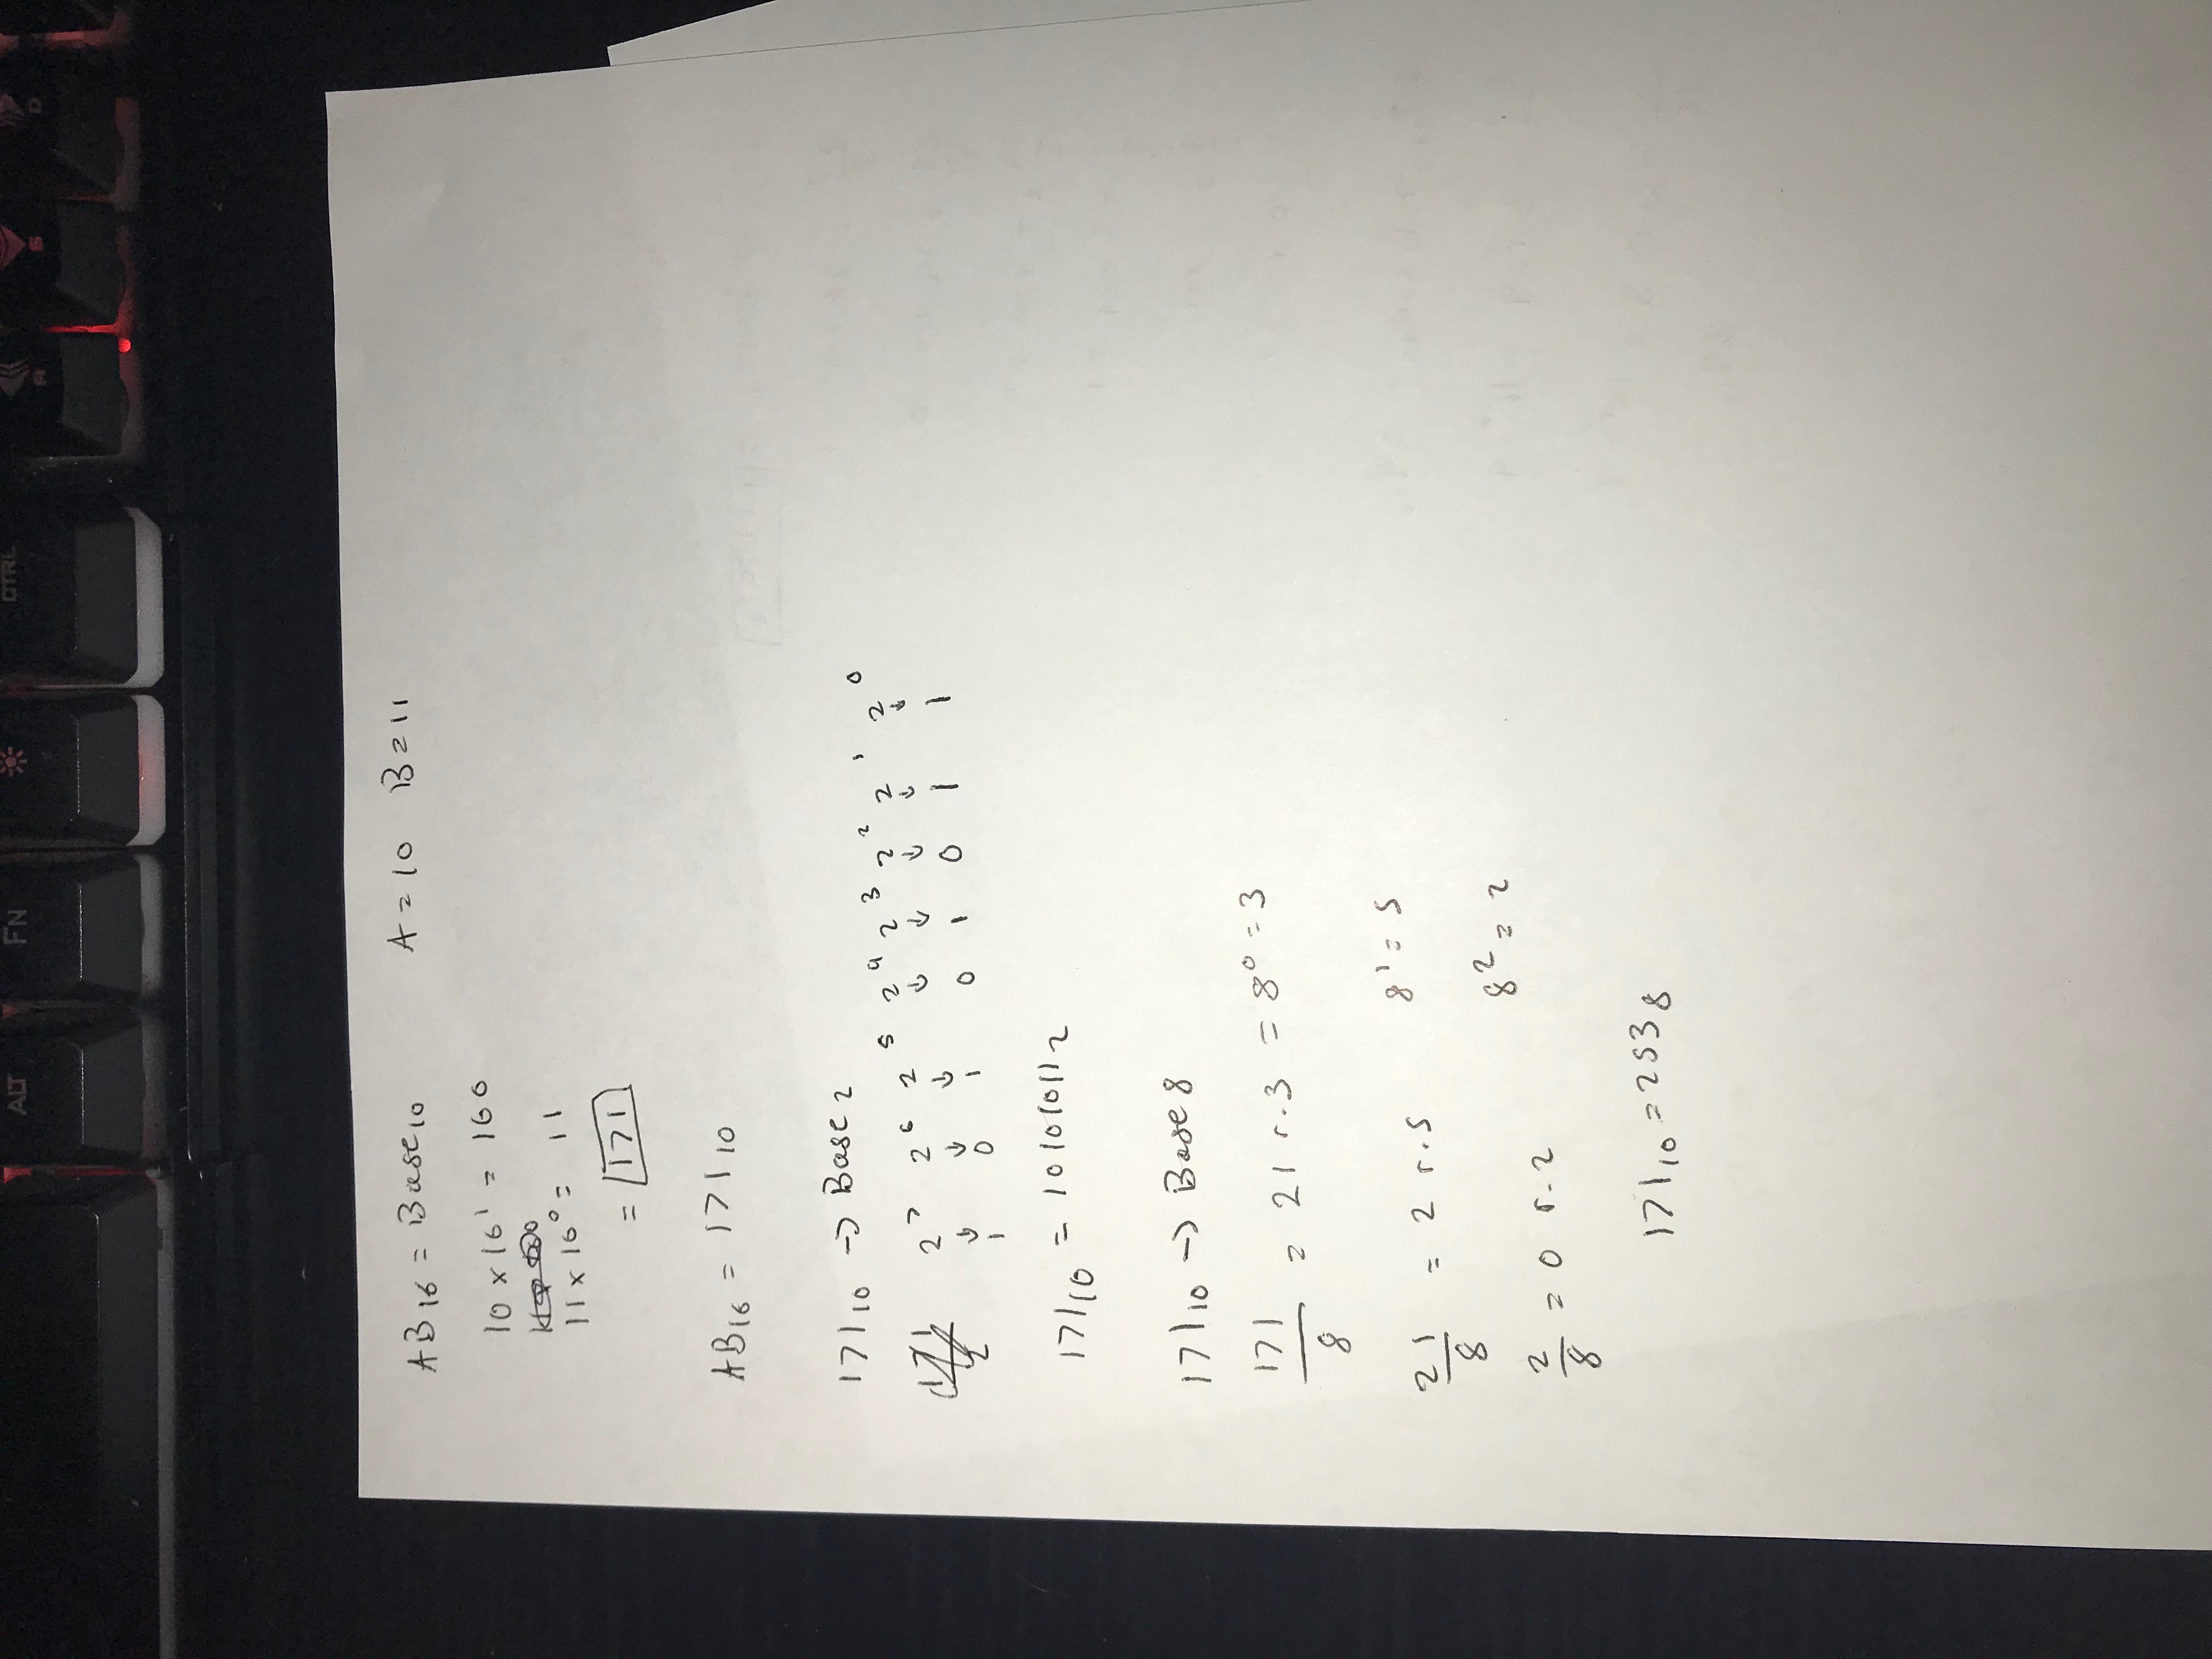 ALT FN CTRL A S D
AB₁₆ = Base₁₀ A = 10 B = 11
10 x 16¹ = 160
11 x 16⁰ = 11
= 171
AB₁₆ = 171₁₀
171₁₀ → Base 2
171/2 2⁷ 2⁶ 2⁵ 2⁴ 2³ 2² 2¹ 2⁰
↓ ↓ ↓ ↓ ↓ ↓ ↓ ↓
1 0 1 0 1 0 1 1
171₁₀ = 10101011₂
171₁₀ → Base 8
171/8 = 21 r.3 = 8⁰ = 3
21/8 = 2 r.5 8¹ = 5
2/8 = 0 r.2 8² = 2
171₁₀ = 253₈